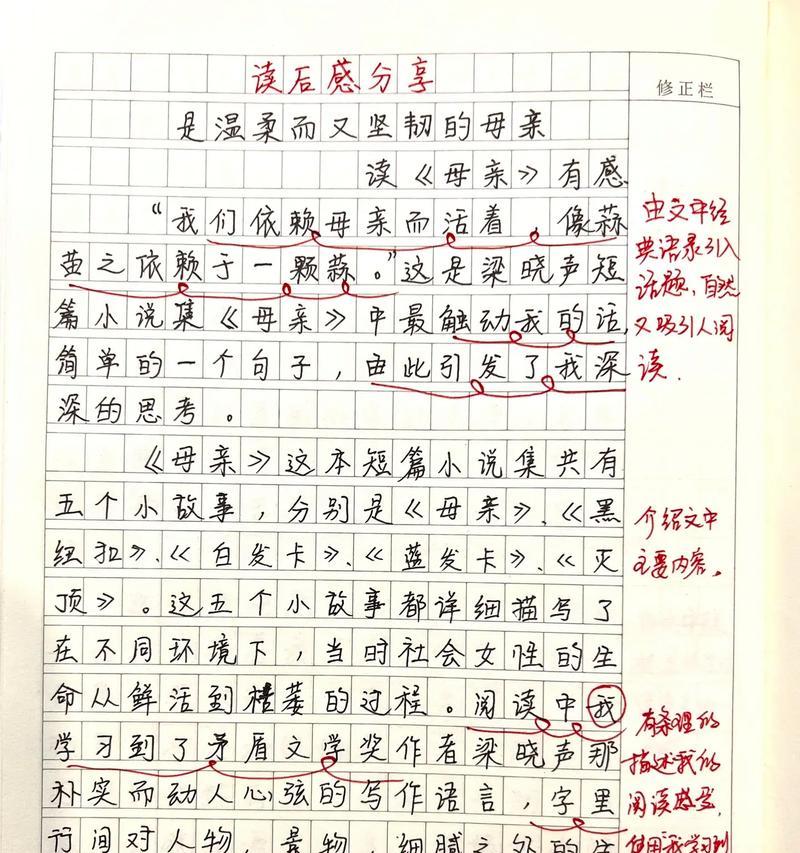 读后感分享
修正栏
是温柔而又坚韧的母亲
读《母亲》有感
“我们依赖母亲而活着，像蒜
苗之依赖于一颗蒜。”这是梁晓声短
篇小说集《母亲》中最触动我的话，
简单的一个句子，由此引发了我深
深的思考。
由文中经
典语录引入
话题，自然
又吸引人阅
读．
《母亲》这本短篇小说集共有
五个小故事，分别是《母亲》、《黑
纽扣》、《白发卡》、《蓝发卡》、《灭
顶》。这五个小故事都详细描写了
在不同环境下，当时社会女性的生
命从鲜活到枯萎的过程。阅读中我
学习到了矛盾文学奖作者梁晓声那
朴实而动人心弦的写作语言，字里
行间对人物，景物，细腻之处的
介绍文中
主要内容。
有条理的
描述我的
阅读感受，
使用我学习到